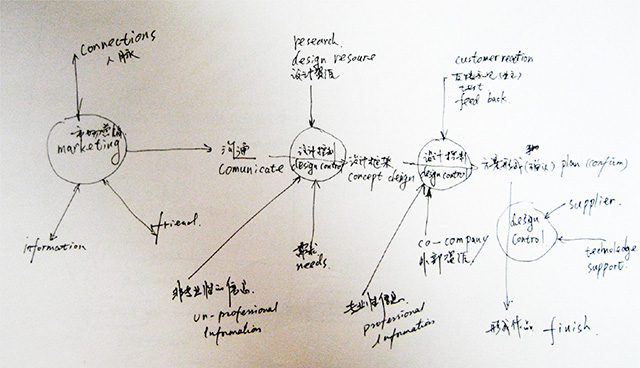 connections
人脉
marketing
information
friend.
沟通
Comunicate
research.
design resourse
设计资源
设计控制
design control
需求
needs.
非专业性的信息
un-professional
Information
设计框架
concept design
customer reaction
test
feed back.
设计控制
design control
co-company
外部资源
专业性信息.
professional
Information
方案形成(确认) plan (confirm)
design
Control
supplier.
technoledge
support.
形成作品 finish.